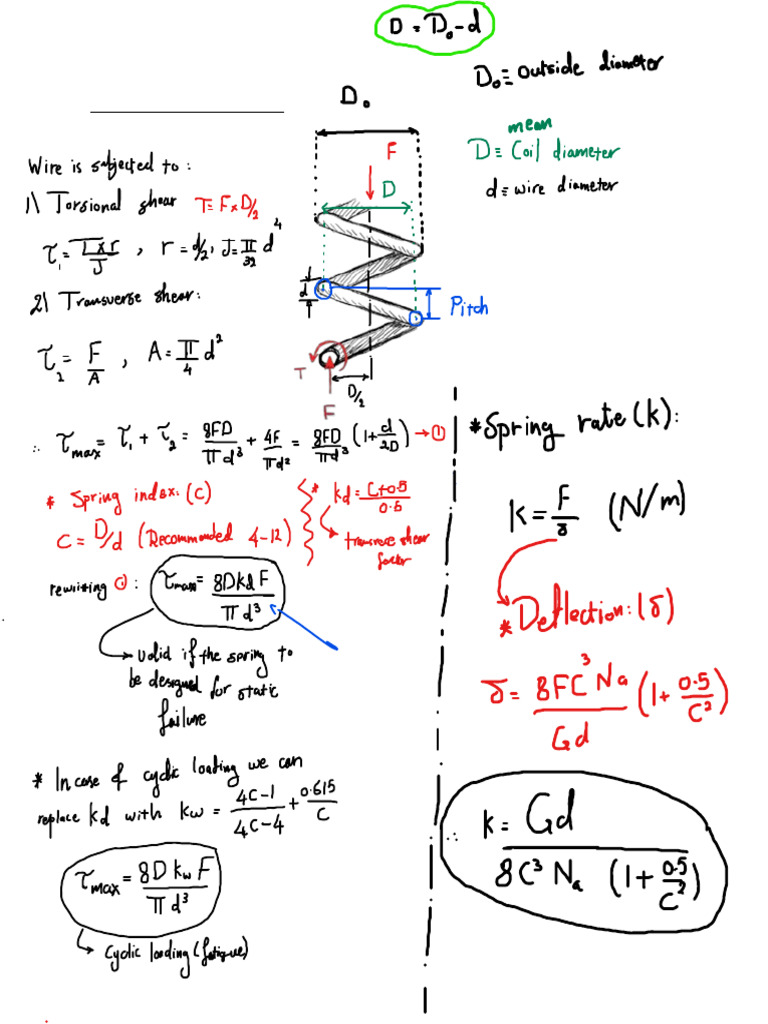 D = D₀ - d
D₀ ≡ Outside diameter
mean
D ≡ Coil diameter
d ≡ wire diameter
D₀
F
D
d
Pitch
T
F
D/2
Wire is subjected to :
1) Torsional shear T = F × D/2
τ₁ = T×r/J , r = d/2, J = π/32 d⁴
2) Transverse shear:
τ₂ = F/A , A = π/4 d²
∴ τmax = τ₁ + τ₂ = 8FD/πd³ + 4F/πd² = 8FD/πd³ (1 + d/2D) → ①
* Spring index: (C)
C = D/d (Recommended 4-12)
* kd = C+0.5/0.5
→ transverse shear
factor
rewriting ① : τmax = 8DkdF/πd³
→ valid if the spring to
be designed for static
failure
* In case of cyclic loading we can
replace kd with kw = 4C-1/4C-4 + 0.615/C
τmax = 8D kw F/πd³
→ Cyclic loading (fatigue)
* Spring rate (k):
k = F/δ (N/m)
* Deflection: (δ)
δ = 8FC³Na/Gd (1 + 0.5/C²)
∴ k = Gd/8C³Na (1 + 0.5/C²)